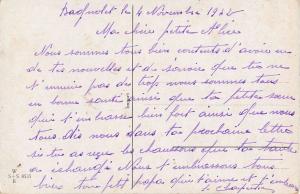 Bagnolet le 4 Novembre 1922
Ma chère petite Alice
Nous sommes tous bien contents d'avoir eu
de tes nouvelles et de savoir que tu ne
t'ennuie pas de trop nous sommes tous
en bonne santé ainsi que ta petite sœur
qui t'embrasse bien fort ainsi que nous
tous dis nous dans ta prochaine lettre
si tu as reçu les chaussons que ta
a échangé Nous t'embrassons tous
bien ton petit papa qui t'aime et